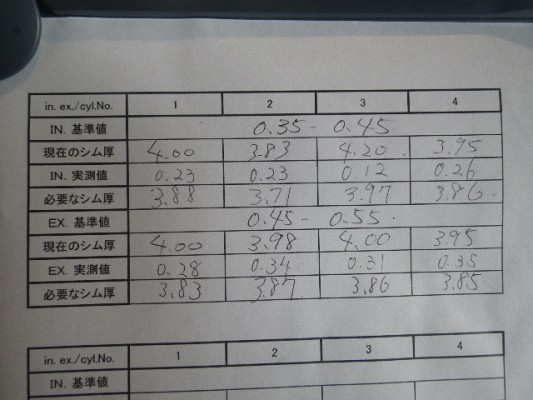 in. ex./cyl.No. 1 2 3 4
IN. 基準値 0.35 - 0.45
現在のシム厚 4.00 3.83 4.20 3.95
IN. 実測値 0.23 0.23 0.12 0.26
必要なシム厚 3.88 3.71 3.97 3.86
EX. 基準値 0.45 - 0.55
現在のシム厚 4.00 3.98 4.00 3.95
EX. 実測値 0.28 0.34 0.31 0.35
必要なシム厚 3.83 3.87 3.86 3.85
in. ex./cyl.No. 1 2 3 4
IN. 基準値